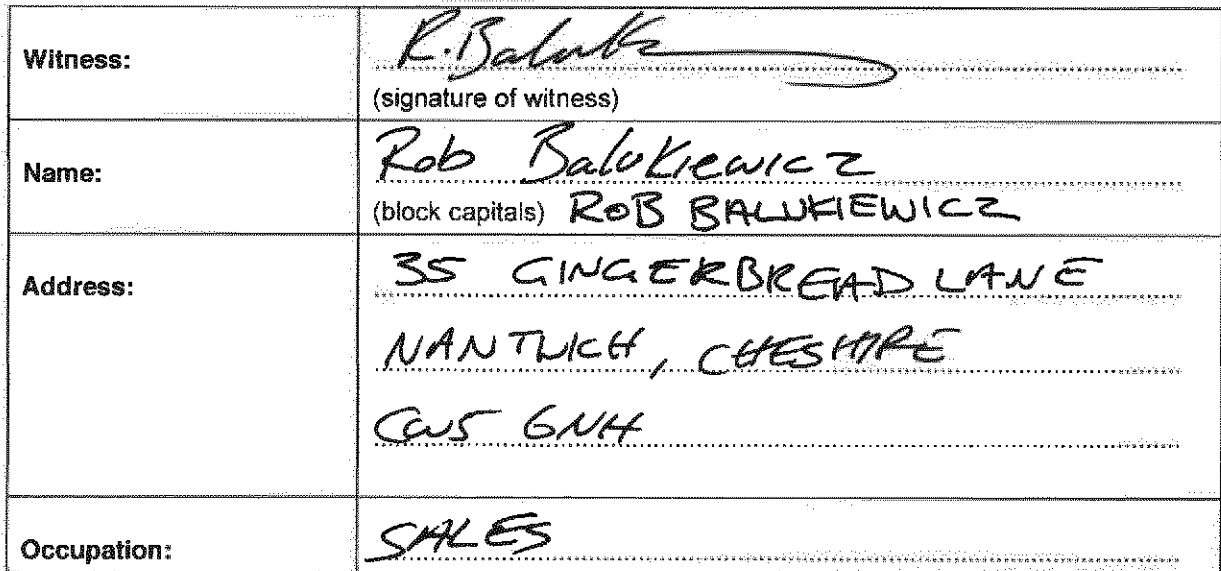 Witness: R. Baluk
(signature of witness)
Name: Rob Balukiewicz
(block capitals) ROB BALUKIEWICZ
Address: 35 GINGERBREAD LANE
NANTWICH, CHESHIRE
CW5 6NH
Occupation: SALES